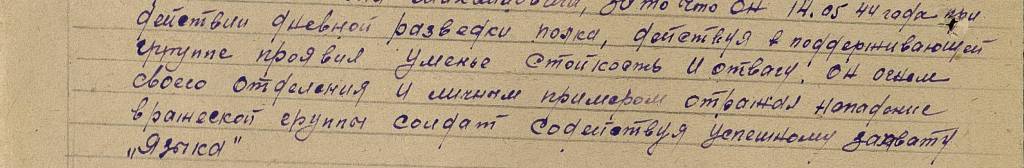 за то что он 14.05 44 года при
действии дневной разведки полка, действуя в поддерживающей
группе проявил уменье стойкость и отвагу. Он огнем
своего отделения и личным примером отражал нападение
вражеской группы солдат содействуя успешному захвату
„Языка"